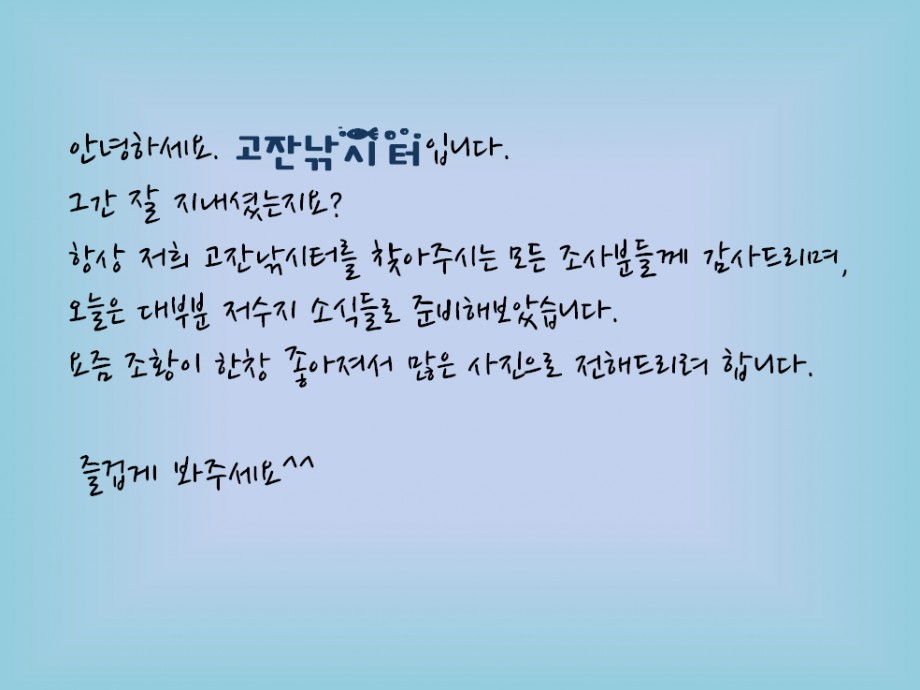 안녕하세요. 고잔낚시터입니다.
그간 잘 지내셨는지요?
항상 저희 고잔낚시터를 찾아주시는 모든 조사분들께 감사드리며,
오늘은 대부분 저수지 소식들로 준비해보았습니다.
요즘 조황이 한창 좋아져서 많은 사진으로 전해드리려 합니다.
즐겁게 봐주세요^^